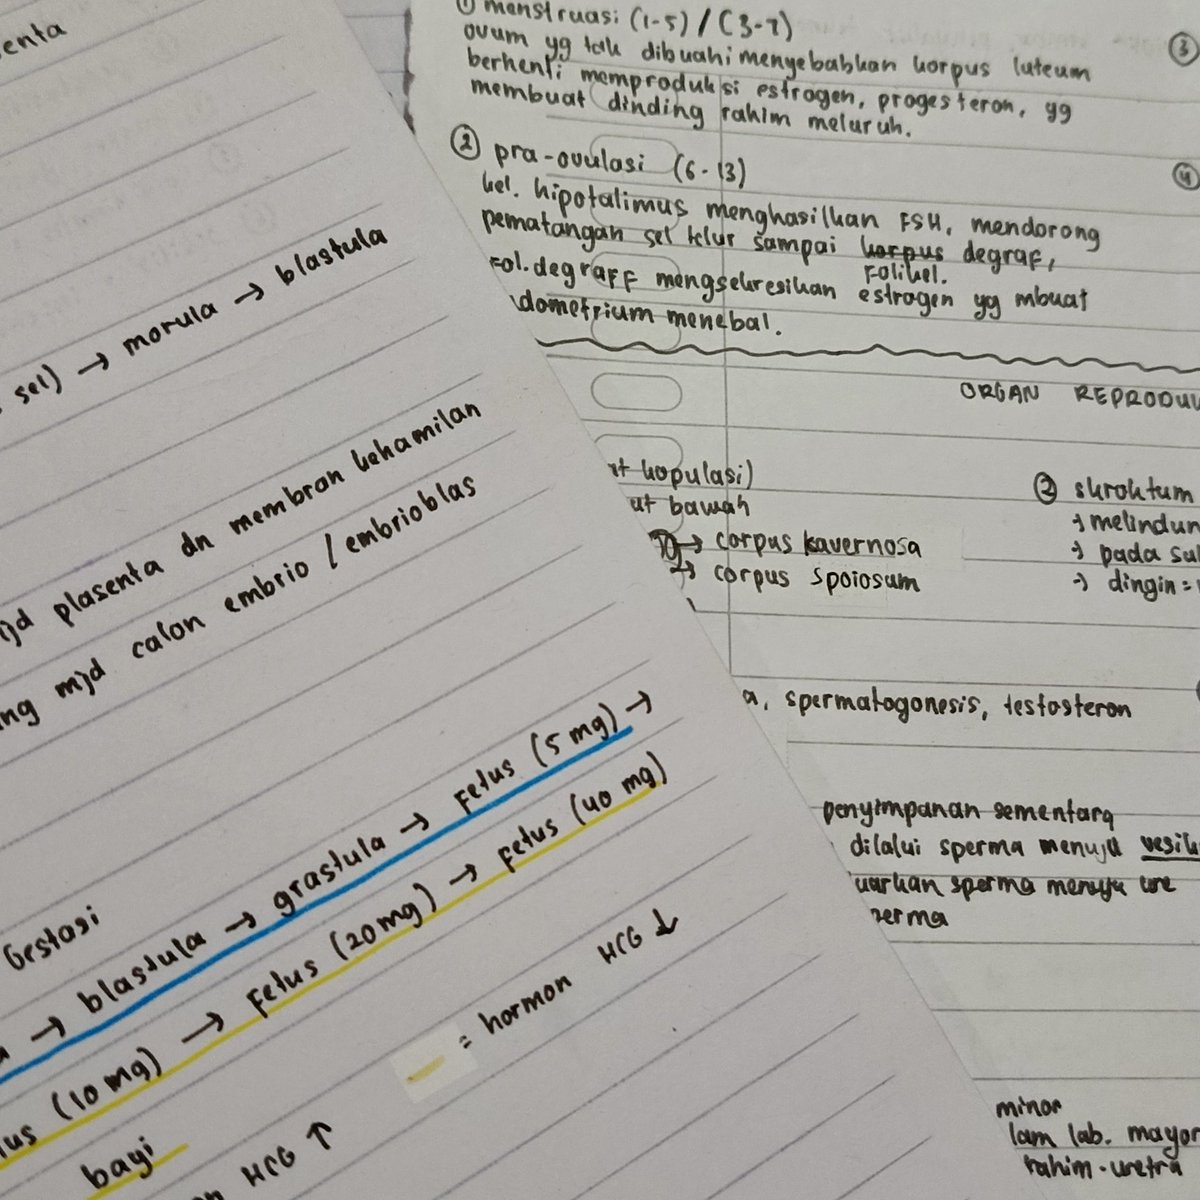 enta
sel) → morula → blastula
jd plasenta dn membran kehamilan
ng mjd calon embrio / embrioblas
Gestasi
→ blastula → grastula → Fetus (5 mg) →
us (10 mg) → Fetus (20 mg) → fetus (40 mg)
bayi
= hormon HCG ↓
HCG ↑
① menstruasi (1-5) / (3-7)
ovum yg tak dibuahi menyebabkan korpus luteum
berhenti memproduksi estrogen, progesteron, yg
membuat dinding rahim meluruh.
② pra-ovulasi (6-13)
kel. hipotalimus menghasilkan FSH, mendorong
pematangan sel telur sampai korpus degraf,
Folikel.
Fol.degraff mengsekresikan estrogen yg mbuat
dometrium menebal.
③
④
ORGAN REPRODU
at kopulasi)
ut bawah
→ corpus kavernosa
→ corpus spoiosum
② skroktum
→ melindun
→ pada su
→ dingin =
a, spermatogonesis, testosteron
penyimpanan sementara
dilalui sperma menuju vesik
uarkan sperma menuju ure
perma
minor
lam lab. mayor
rahim-uretra